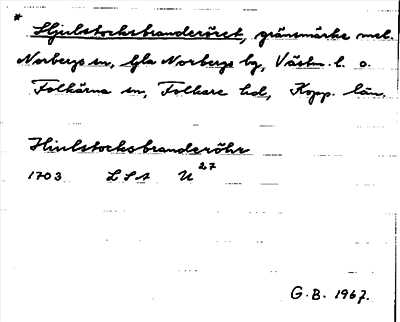 * Hjulstocksbranderöret, gränsmärke mel.
Norbergs sn, Gla Norbergs by, Västm. l. o.
Folkärna sn, Folkare hd, Kopp. län.
Hiulstocksbranderöhr
1703 LSA U 27
G.B. 1967.